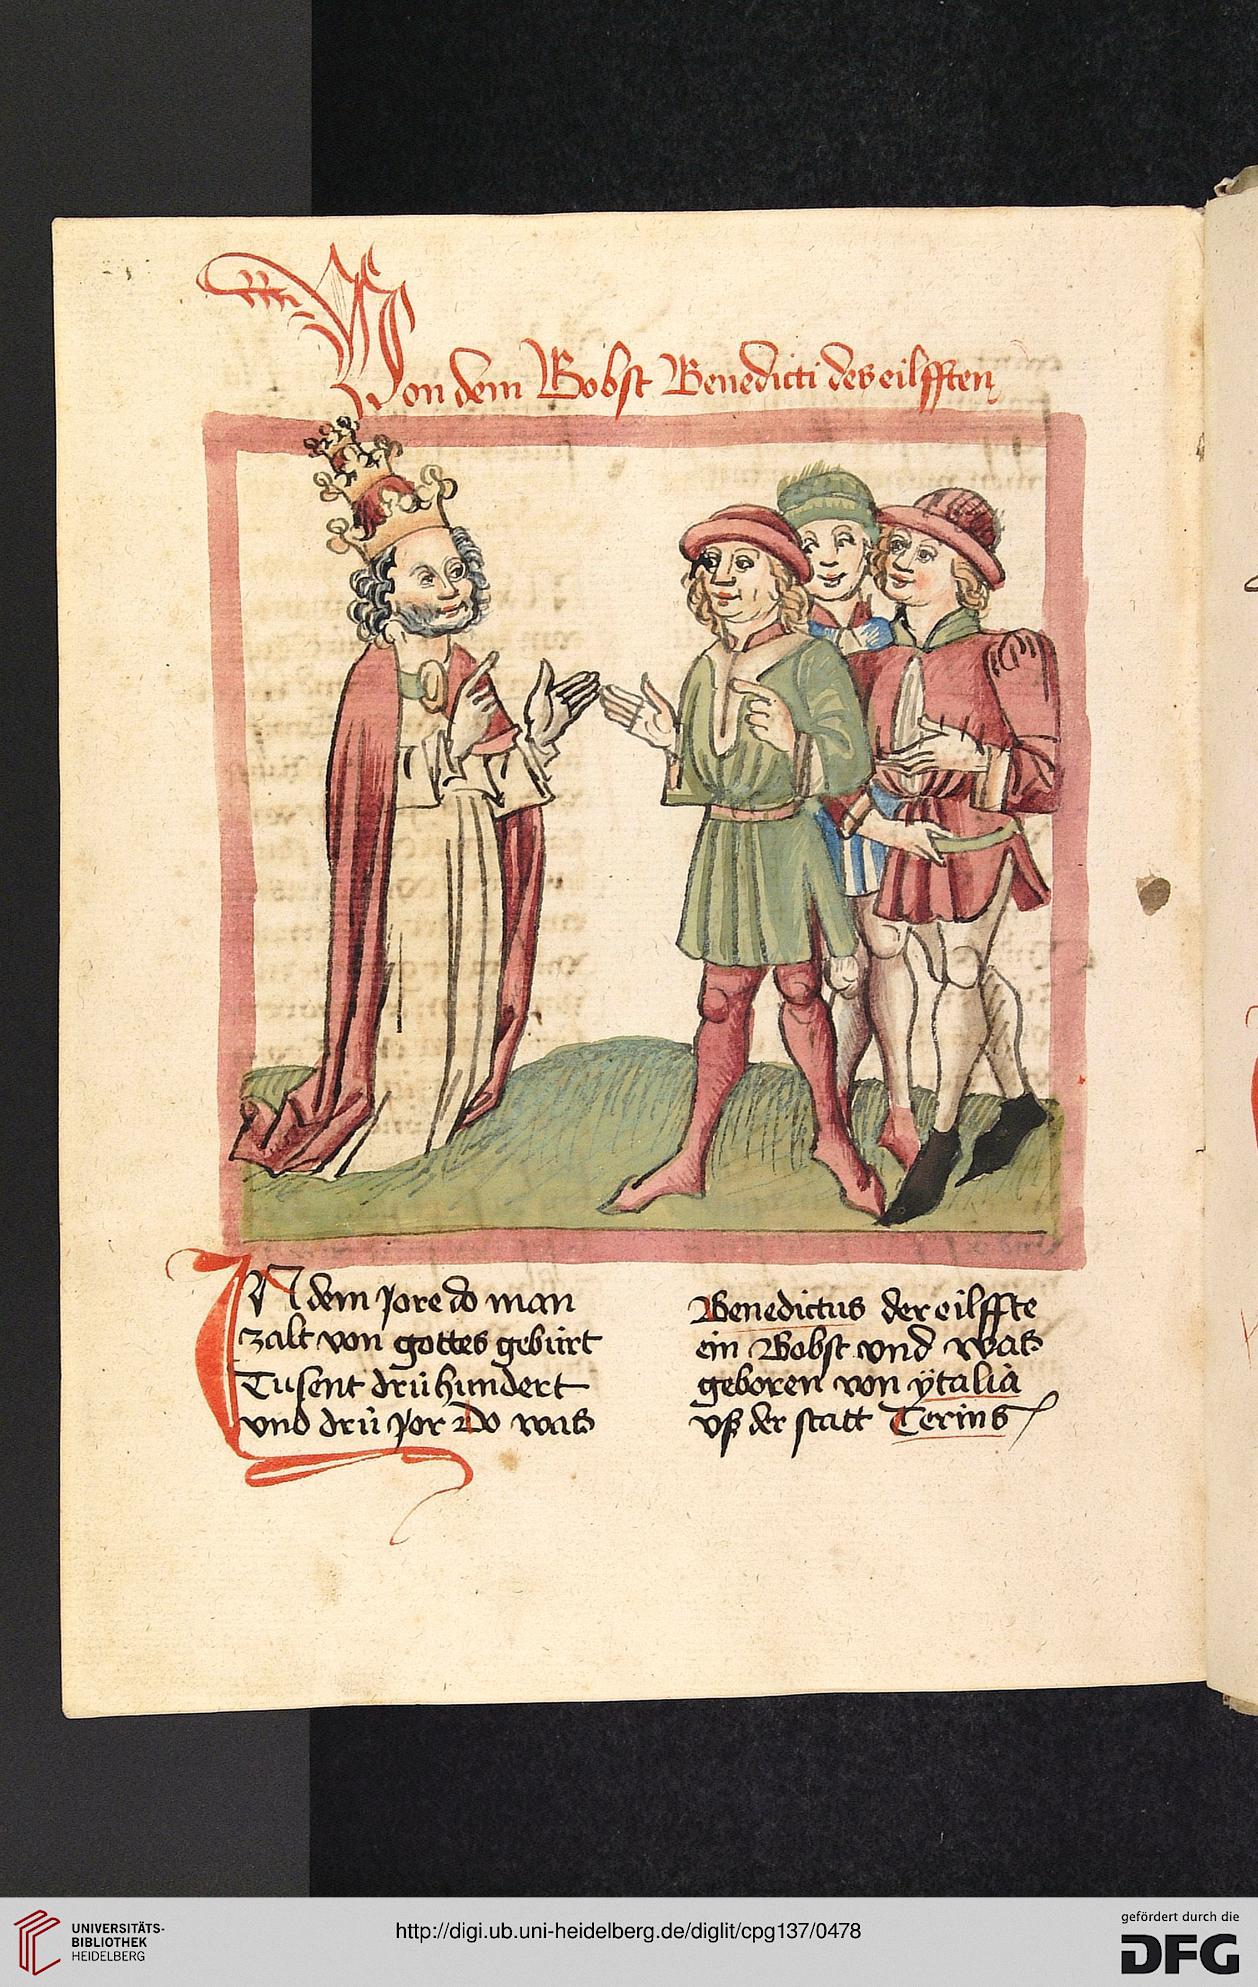 Von dem Bobst Benedicti des eilfften
IN dem jore do man
zalt von gottes gebürt
Tusent drü hundert
vnd drü jor Do was
Benedictus der eilffte
ein Bobst vnd was
geboren von ytalia
vß der statt Terins
UNIVERSITÄTS-
BIBLIOTHEK
HEIDELBERG
http://digi.ub.uni-heidelberg.de/diglit/cpg137/0478
gefördert durch die
DFG